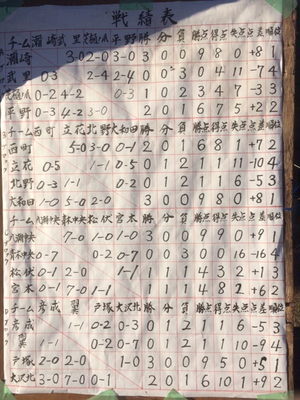 戦績表
チーム 瀬崎 武里 平野 勝 分 負 勝点 得点 失点 点差 順位
瀬崎 3-0 2-0 3-0 3 0 0 9 8 0 +8 1
武里 0-3 2-4 2-4 0 0 3 0 4 11 -7 4
0-2 4-2 0-3 1 0 2 3 4 7 -3 3
平野 0-3 4-2 3-0 2 0 1 6 7 5 +2 2
チーム 西町 立花 北野 大和田 勝 分 負 勝点 得点 失点 点差 順位
西町 5-0 3-0 0-1 2 0 1 6 8 1 +7 2
立花 0-5 1-1 0-5 0 1 2 1 1 11 -10 4
北野 0-3 1-1 0-2 0 1 2 1 1 6 -5 3
大和田 1-0 5-0 2-0 3 0 0 9 8 0 +8 1
チーム 八潮中央 青木中央 松伏 宮本 勝 分 負 勝点 得点 失点 点差 順位
八潮中央 7-0 1-0 1-0 3 0 0 9 9 0 +9 1
青木中央 0-7 0-2 0-7 0 0 3 0 0 16 -16 4
松伏 0-1 2-0 1-1 1 1 1 4 3 2 +1 3
宮本 0-1 7-0 1-1 1 1 1 4 8 2 +6 2
チーム 彦成 翼 戸塚 大沢北 勝 分 負 勝点 得点 失点 点差 順位
彦成 1-1 0-2 0-3 0 1 2 1 1 6 -5 3
翼 1-1 0-2 0-7 0 1 2 1 1 10 -9 4
戸塚 2-0 2-0 1-0 3 0 0 9 5 0 +5 1
大沢北 3-0 7-0 0-1 2 0 1 6 10 1 +9 2